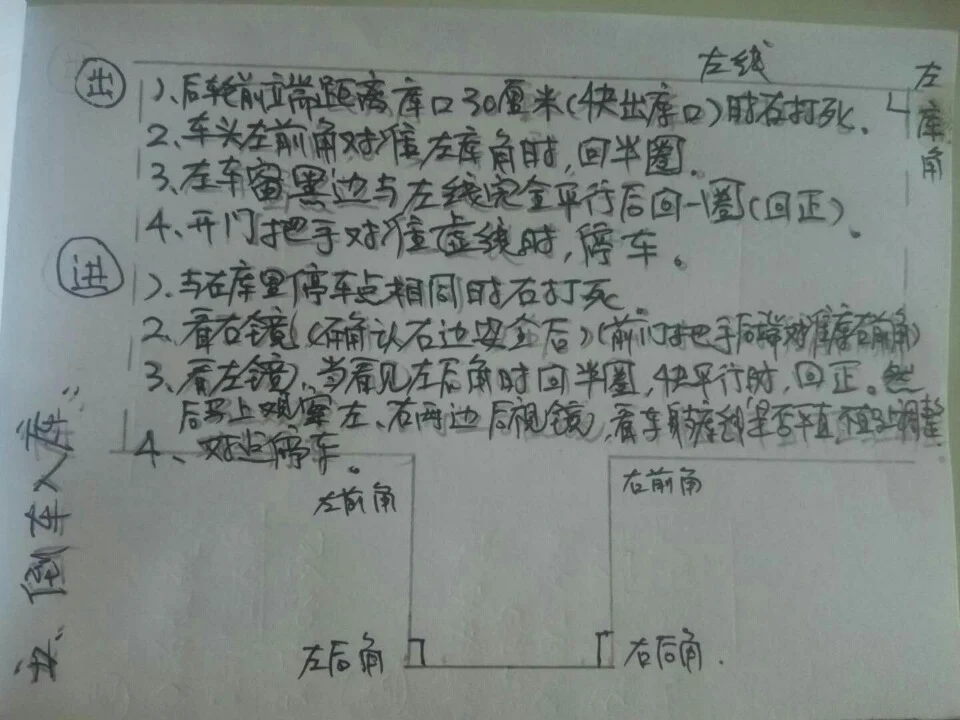 左线
左库角
出
1、后轮前端距离库口30厘米(快出库口)时右打死.
2、车头左前角对准左库角时,回半圈.
3、左车窗黑边与左线完全平行后回一圈(回正)。
4、开门把手对准虚线时,停车。
进
1、与在库里停车点相同时右打死.
2、看右镜(确认右边安全后)(前门把手后端对准库右前角)
3、看左镜,当看见左后角时回半圈,快平行时,回正。然
后马上观察左、右两边后视镜,看车身库线是否平直,不直马上调整.
4、对点停车。
倒车入库:
左前角
右前角
左后角
右后角.